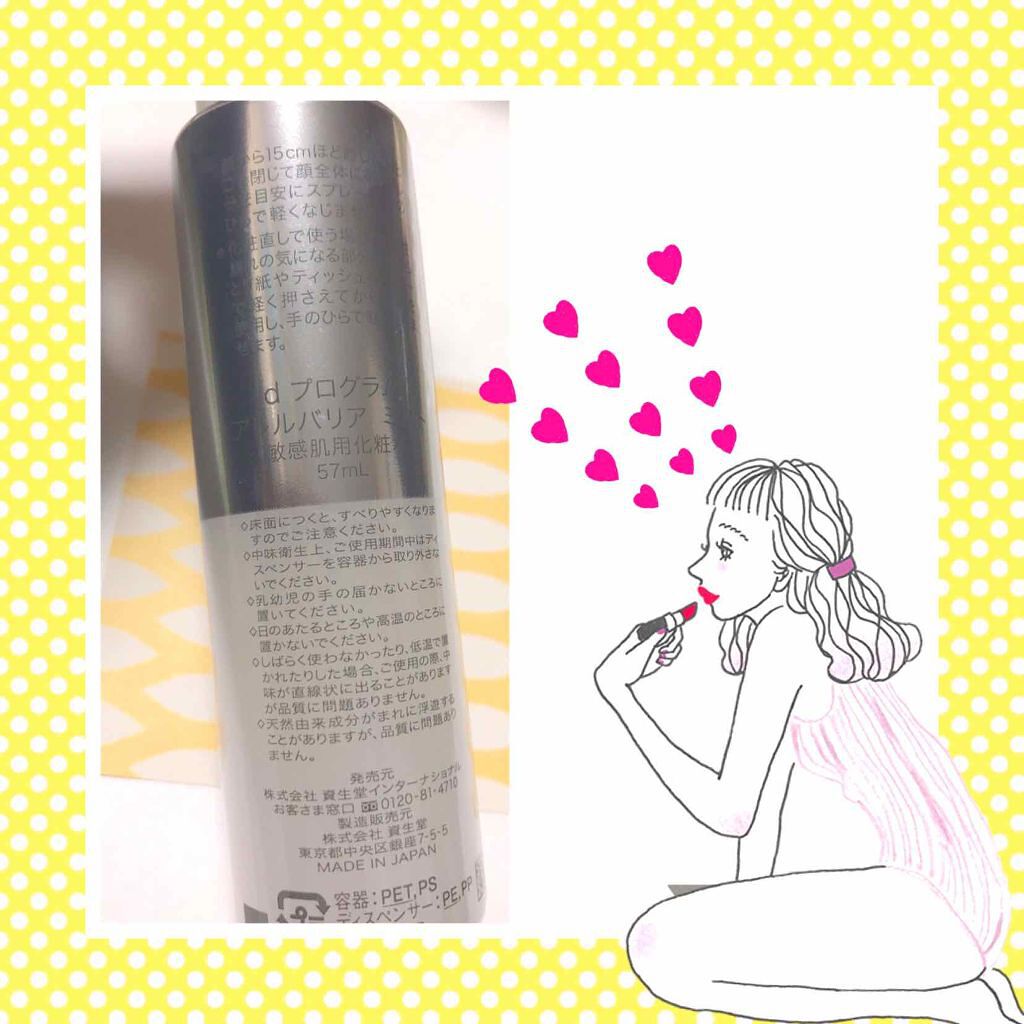 ら15cmほど
閉じて顔全体に
を目安にスプレ
で軽くなじま
直しで使う場
れの気になる部
紙やティッシュ
軽く押さえてか
用し、手のひらで
ます。
d プログラ
アレルバリア ミ
敏感肌用化粧
57mL
◇床面につくと、すべりやすくなりま
すのでご注意ください。
◇中味衛生上、ご使用期間中はディ
スペンサーを容器から取り外さな
いでください。
◇乳幼児の手の届かないところに
置いてください。
◇日のあたるところや高温のところに
置かないでください。
◇しばらく使わなかったり、低温で置
かれたりした場合、ご使用の際、中
味が直線状に出ることがあります
が品質に問題ありません。
◇天然由来成分がまれに浮遊する
ことがありますが、品質に問題あり
ません。
発売元
株式会社 資生堂インターナショナル
お客さま窓口 0120-81-4710
製造販売元
株式会社 資生堂
東京都中央区銀座7-5-5
MADE IN JAPAN
プラ 容器:PET,PS
ディスペンサー:PE,PP